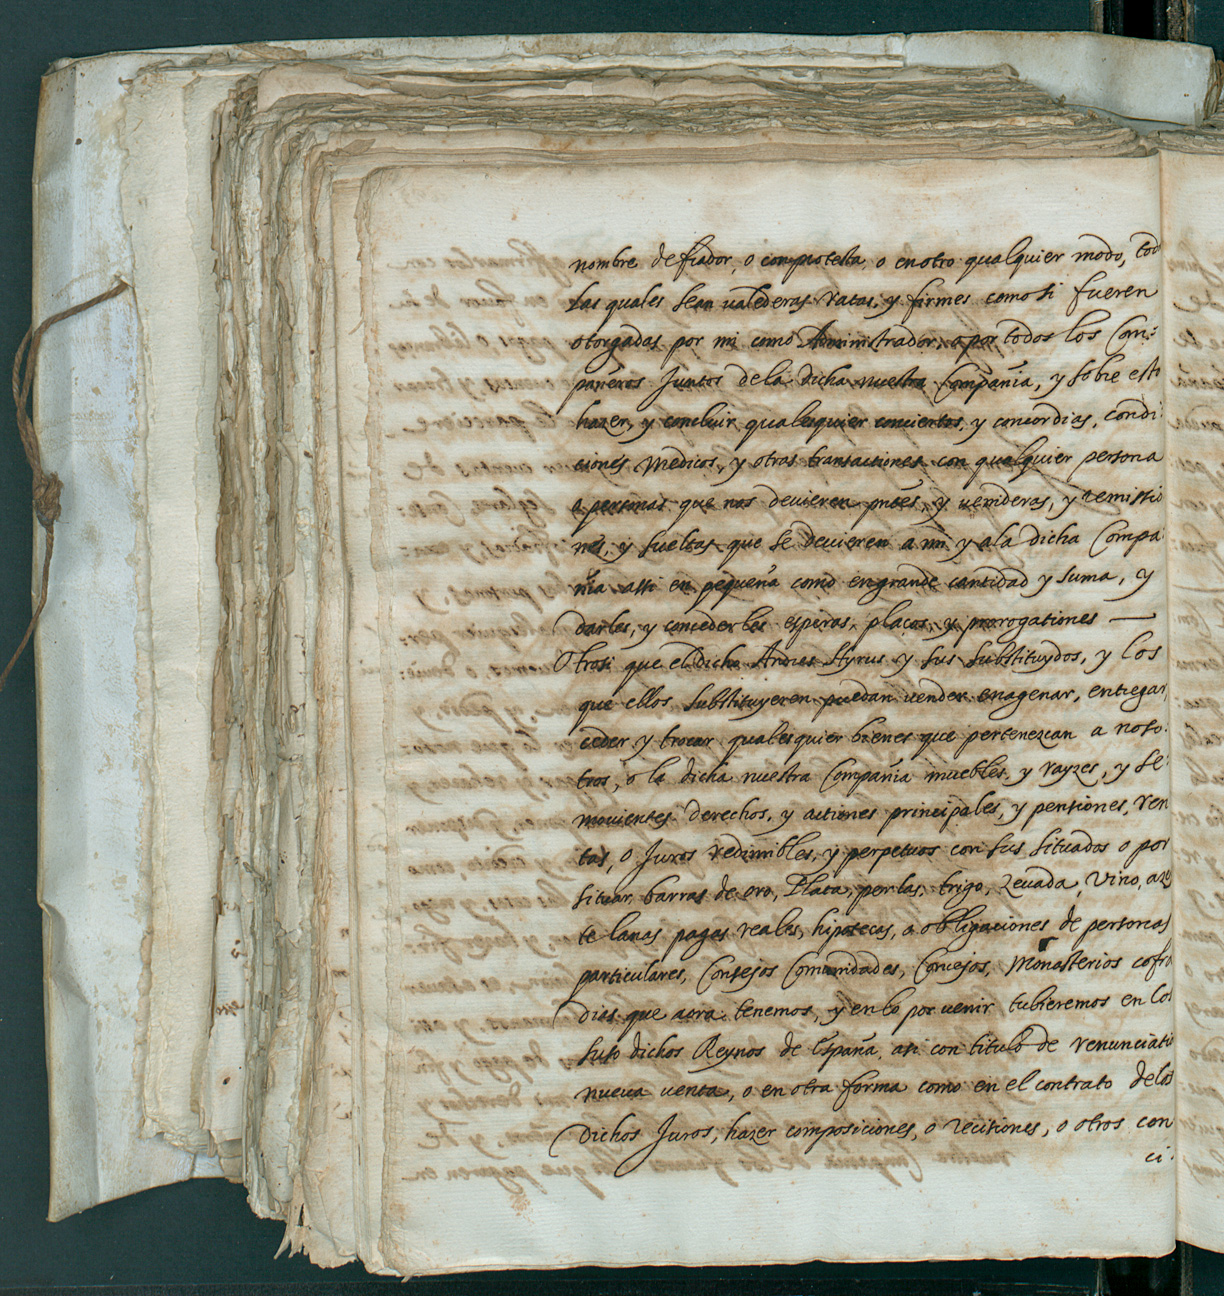 nombre de fiador, o comprotesta, o en otro qualquier modo, tod
las quales sean valederas ratas, y firmes como si fueren
otorgadas por mi como Administrador, o por todos los Com:
pañeros Juntos dela dicha nuestra Compañia, y sobre esto
hazer, y concluir qualesquier conciertos, y concordias, condi:
ciones medios, y otras transactiones con qualquier persona
o personas que nos devieren pntes, y venideras, y remissio
nes, y sueltas que se devieren a mi y ala dicha Compa:
ñia assi en pequeña como en grande cantidad y suma, y
darles, y concederles esperas, plaços, y prorogationes —
Otrosi que el dicho Andres Hyrus y sus substituydos, y los
que ellos substituyeren puedan vender enagenar, entregar,
ceder y trocar qualesquier bienes que pertenezcan a noso:
tros, o la dicha nuestra Compañia muebles, y rayzes, y se:
movientes derechos, y actiones principales, y pensiones, ren
tas, o Juros redimibles, y perpetuos con sus situados o por
situar, barras de oro, Plata, perlas, trigo, zevada, vino, aze
te lanas pagas reales, hipotecas, o obligaciones de personas
particulares, Consejos Comunidades, Concejos, Monasterios cofra
dias que aora tenemos, y en lo por venir tubieremos en los
suso dichos Reynos de España, asi con titulo de renunciatio
nueva venta, o en otra forma como en el contrato delos
dichos Juros, hazer composiciones, o recisiones, o otros con
ci: